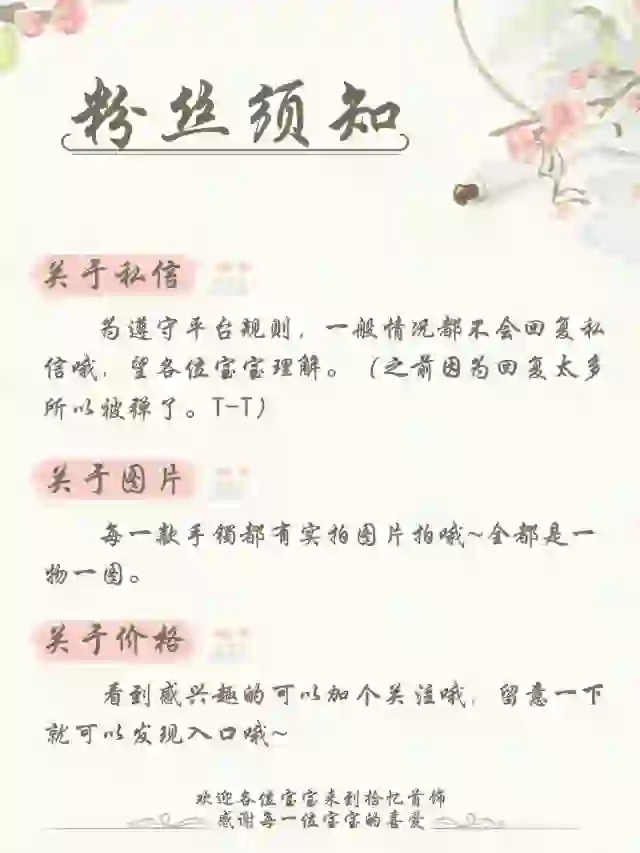 粉丝须知
关于私信
为遵守平台规则，一般情况都不会回复私
信哦，望各位宝宝理解。（之前因为回复太多
所以被弹了。T-T）
关于图片
每一款手镯都有实拍图片拍哦~全都是一
物一图。
关于价格
看到感兴趣的可以加个关注哦，留意一下
就可以发现入口哦~
欢迎各位宝宝来到拾忆首饰
感谢每一位宝宝的喜爱